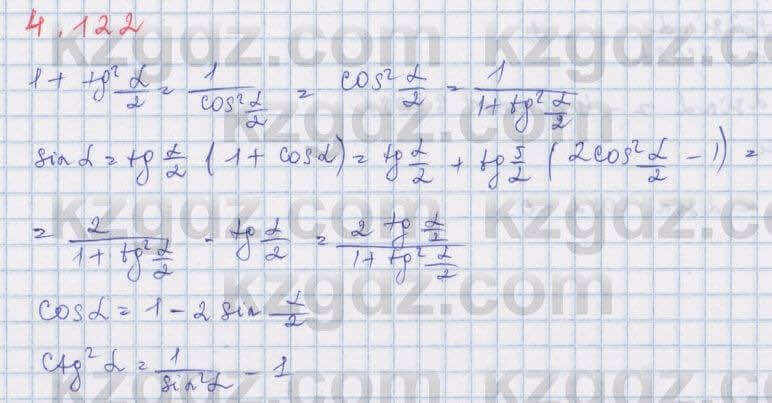 4.122
1 + tg² α/2 = 1/(cos² α/2) = cos² α/2 = 1/(1 + tg² α/2)
sin α = tg α/2 (1 + cos α) = tg α/2 + tg 5/2 (2cos² α/2 - 1) =
= 2/(1 + tg² α/2) - tg α/2 = (2 tg α/2)/(1 + tg² α/2)
cos α = 1 - 2 sin α/2
ctg² α = 1/(sin² α) - 1
kzgdz.com
kzgdz.com
kzgdz.com
kzgdz.com
kzgdz.com